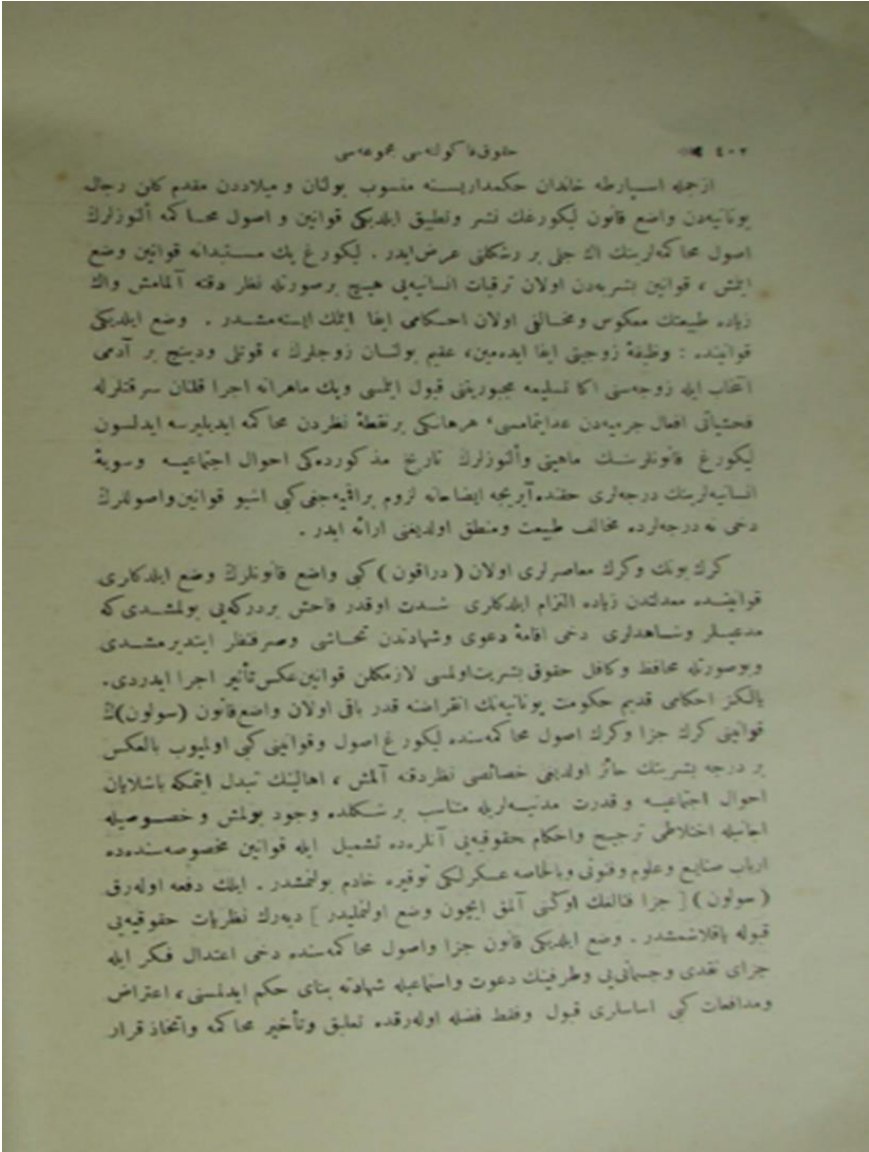 ٤٠٢ حقوق فاكولته‌سی مجموعه‌سی
ازجمله اسپارطه خاندان حكمداریسنه منسوب بولنان و میلاددن مقدم كلن رجال
یونانیه‌دن واضع قانون لیكورغك نشر وتطبیق ایلدیكی قوانین و اصول محاكمه
اصول محاكمه‌لرینك اك جلی بر شكلنی عرض ایدر . لیكورغ پك مستبدانه قوانین وضع
ایتمش ، قوانین بشریه‌دن اولان ترقیات انسانیه‌یی هیچ برصورتله نظر دقته آلمامش واك
زیاده طبیعتك معكوس ومخالفی اولان احكامی ایفا ایتمك ایسته‌مشدر . وضع ایلدیكی
قوانینده : وظیفهٔ زوجیتی ایفا ایده‌مین، عقیم بولنان زوجلرك ، قوتلی ودینچ بر آدمی
انتخاب ایله زوجه‌سنی اكا تسلیمه مجبوریتنی قبول ایتمسی وپك ماهرانه اجرا قلنان سرقتلرله
فحشیاتی افعال جرمیه‌دن عدایتمامسی، هرهانكی برنقطهٔ نظردن محاكمه ایدیلیرسه ایدلسون
لیكورغ قانونلرینك ماهیتی تاریخ مذكورده‌كی احوال اجتماعیه وسویهٔ
انسانیه‌لرینك درجه‌لری حقنده آیریجه ایضاحاته لزوم براقمیه‌جغی كبی اشبو قوانین واصوللرك
دخی نه درجه‌لرده مخالف طبیعت ومنطق اولدیغنی ارائه ایدر .
كرك بونك وكرك معاصرلری اولان ( دراقون ) كبی واضع قانونلرك وضع ایلدكلری
قوانینده معدلتدن زیاده التزام ایلدكلری شدت اوقدر فاحش بردركه‌یی بولمشدی كه
مدعیلر وشاهدلری دخی اقامهٔ دعوی وشهادتدن تحاشی وصرفنظر ایتدیرمشدی
وبوصورتله محافظ وكافل حقوق بشریت اولمسی لازمكلن قوانین عكس تأثیر اجرا ایدردی.
یالكز احكامی قدیم حكومت یونانیه‌نك انقراضنه قدر باقی اولان واضع قانون (سولون)ك
قوانینی كرك جزا وكرك اصول محاكمه‌سنده لیكورغ اصول وقوانینی كبی اولمیوب بالعكس
بر درجه بشریتك حائز اولدیغی خصائصی نظردقته آلمش ، اهالینك تبدل ایتمكه باشلایان
احوال اجتماعیه و قدرت مدنیه‌لریله متناسب برشكلده وجود بولمش و خصوصیله
اجانبله اختلاطی ترجیح واحكام حقوقیه‌یی آنلره‌ده تشمیل ایله قوانین مخصوصه‌سنده‌ده
ارباب صنایع وعلوم وفنونی وبالخاصه عسكرلكی توقیره خادم بولنمشدر . ایلك دفعه اوله‌رق
( سولون ) [ جزا فنالغك اوكنی آلمق ایچون وضع اولنملیدر ] دیه‌رك نظریات حقوقیه‌یی
قبوله یاقلاشمشدر . وضع ایلدیكی قانون جزا واصول محاكمه‌سنده دخی اعتدال فكر ایله
جزای نقدی وجسمانی‌یی وطرفینك دعوت واستماعیله شهادته بنای حكم ایدلمسنی، اعتراض
ومدافعات كبی اساسلری قبول وفقط فضله اوله‌رقده تعلیق وتأخیر محاكمه واتخاذ قرار